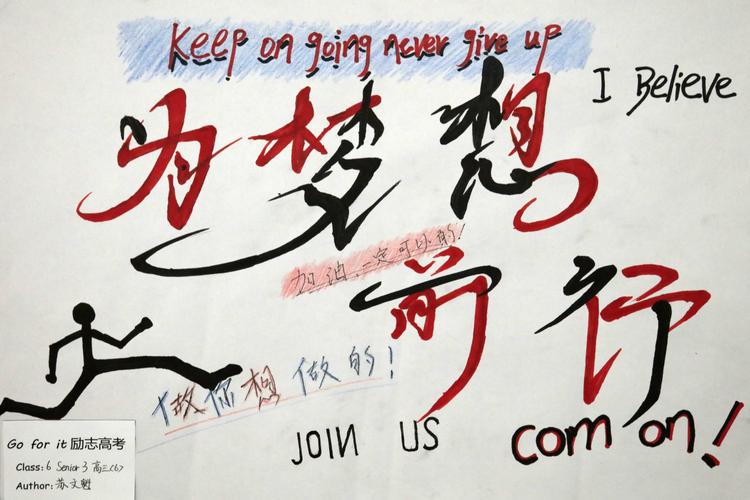 Keep on going never give up
I Believe
为梦想
加油一定可以的!
前行
做你想做的!
JOIN US
com on!
Go for it 励志高考
Class: 6 Senior 3 高三(6)
Author: 苏文魁